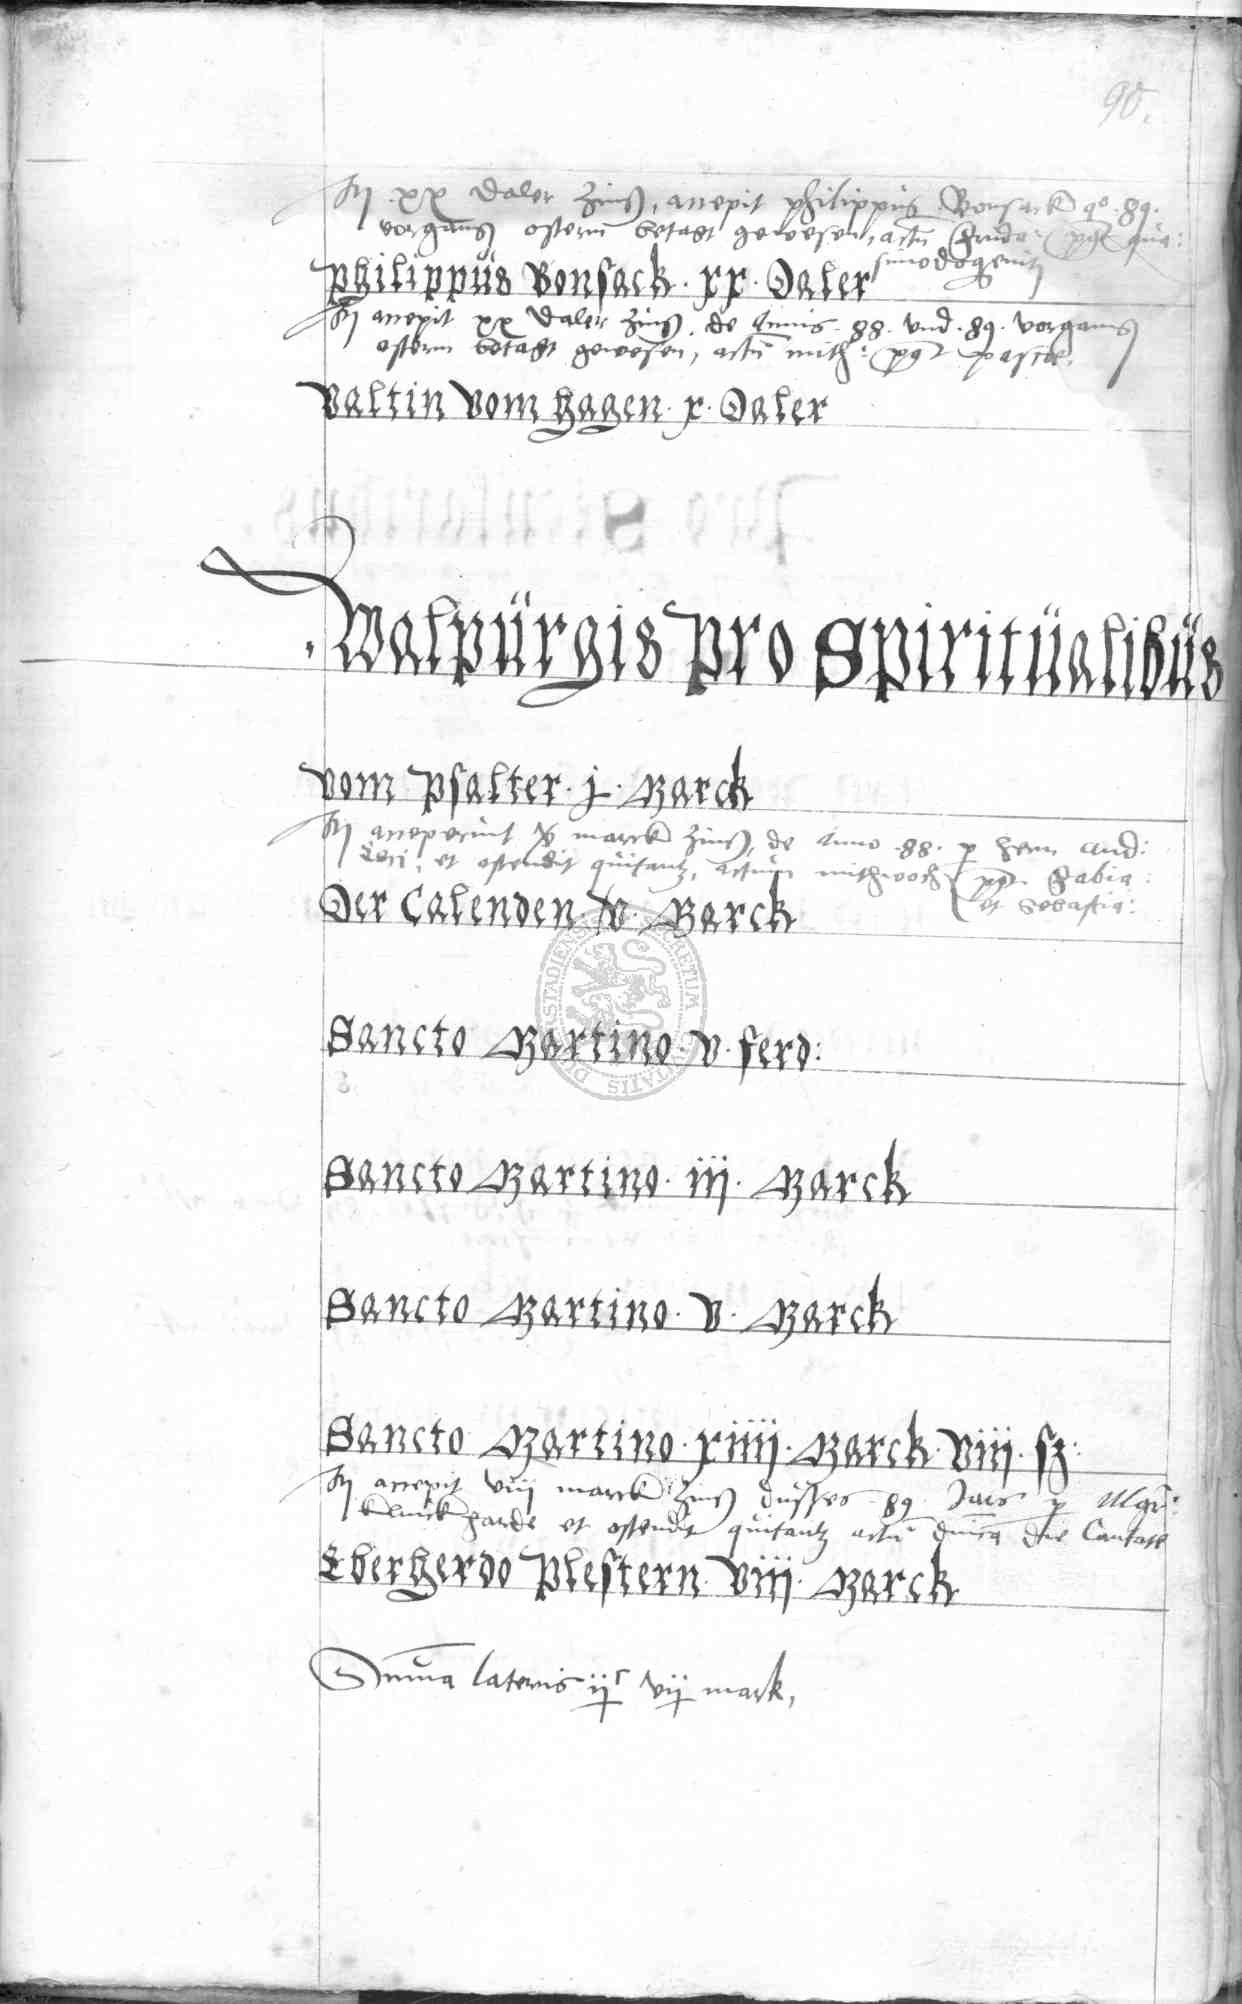 90.
xx Daler Zinß, accepit philippus Bonsack ao. 89.
vorgangs ostern betagt gewesen, actū
Philippüs Bonsack. xx. Daler
accepit xx Daler Zinß, de Annis. 88. vnd. 89. vorgangs
ostern betagt gewesen, actū mith: pasce.
Valtin Vom Hagen. x. Daler
Walpürgis Pro Spiritüalibüs
Vom Psalter. j. Marck
acceperunt v marck Zinß, de Anno. 88. p hern And:
et ostendit quitantz, actum mithwoch Fabia:
et Sebastia:
Der Calenden. V. Marck
SECRETUM CIVITATIS DUDERSTADIENSIS
Sancto Martino. v. ferd:
Sancto Martino. iij. Marck
Sancto Martino. V. Marck
Sancto Martino. xiiij. Marck. Viij. sz:
accepit viij marck Zinß düsses 89 Jars p
et ostendit quitantz actū dnica die Cantate
Eberherdo Plestern. Viij. Marck
Suma lateris vij mark,